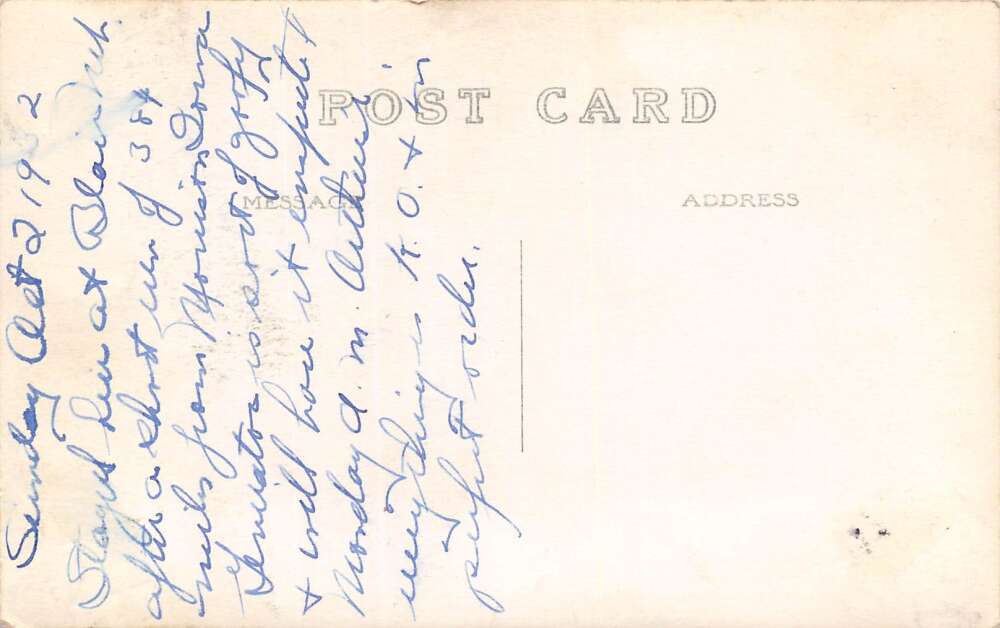 POST CARD
MESSAGE
ADDRESS
Sunday Oct 2 1932
Stayed here at Blair Neb.
after a short run of 384
miles from Monison Iowa
Genirator is sort of goofy
& will have it inspected
Monday a.m. Otherwise
everything is K.O. & in
perfect order.